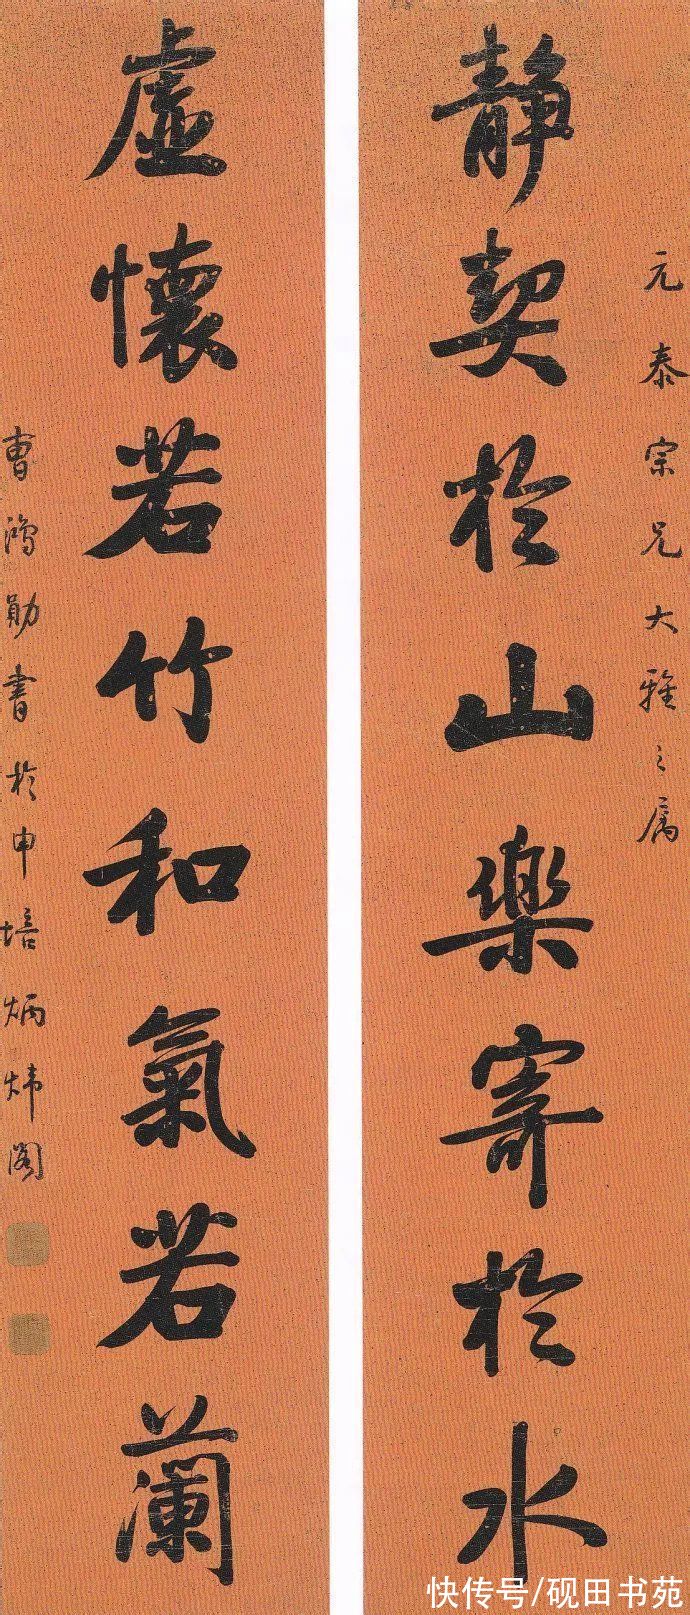 元泰宗兄大雅之属
静契於山樂寄於水
虛懷若竹和氣若蘭
曹鴻勛書於申培炳煒閣
快传号/砚田书苑